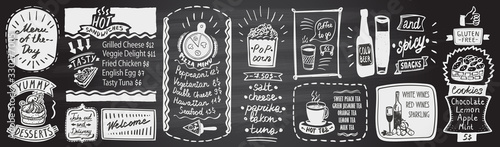 Menu of the Day
YUMMY
DESSERTS
HOT
SANDWICHES
TASTY
Grilled Cheese $2
Veggie Delight $1
Fried Chicken $2
English Egg $1
Tasty Tuna $2
Take out
and
Delivery
Welcome
PIZZA MENU
Pepperoni
Vegetarian
Double cheese
Hawaiian
Seafood
POP
CORN
salt
cheese
paprika
bacon
tuna
Coffee
to go
HOT TEA
SWEET PEACH TEA
GREEN JASMINE TEA
ORANGE TEA
LEMON TEA
MILK TEA
COLD
BEER
and
spicy
SNACKS
WHITE WINES
RED WINES
SPARKLING
GLUTEN
FREE
Cookies
Chocolate
Lemon
Apple
Mint